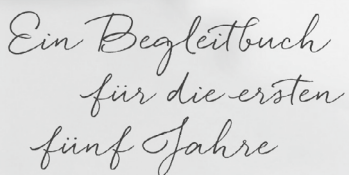 Ein Begleitbuch
für die ersten
fünf Jahre